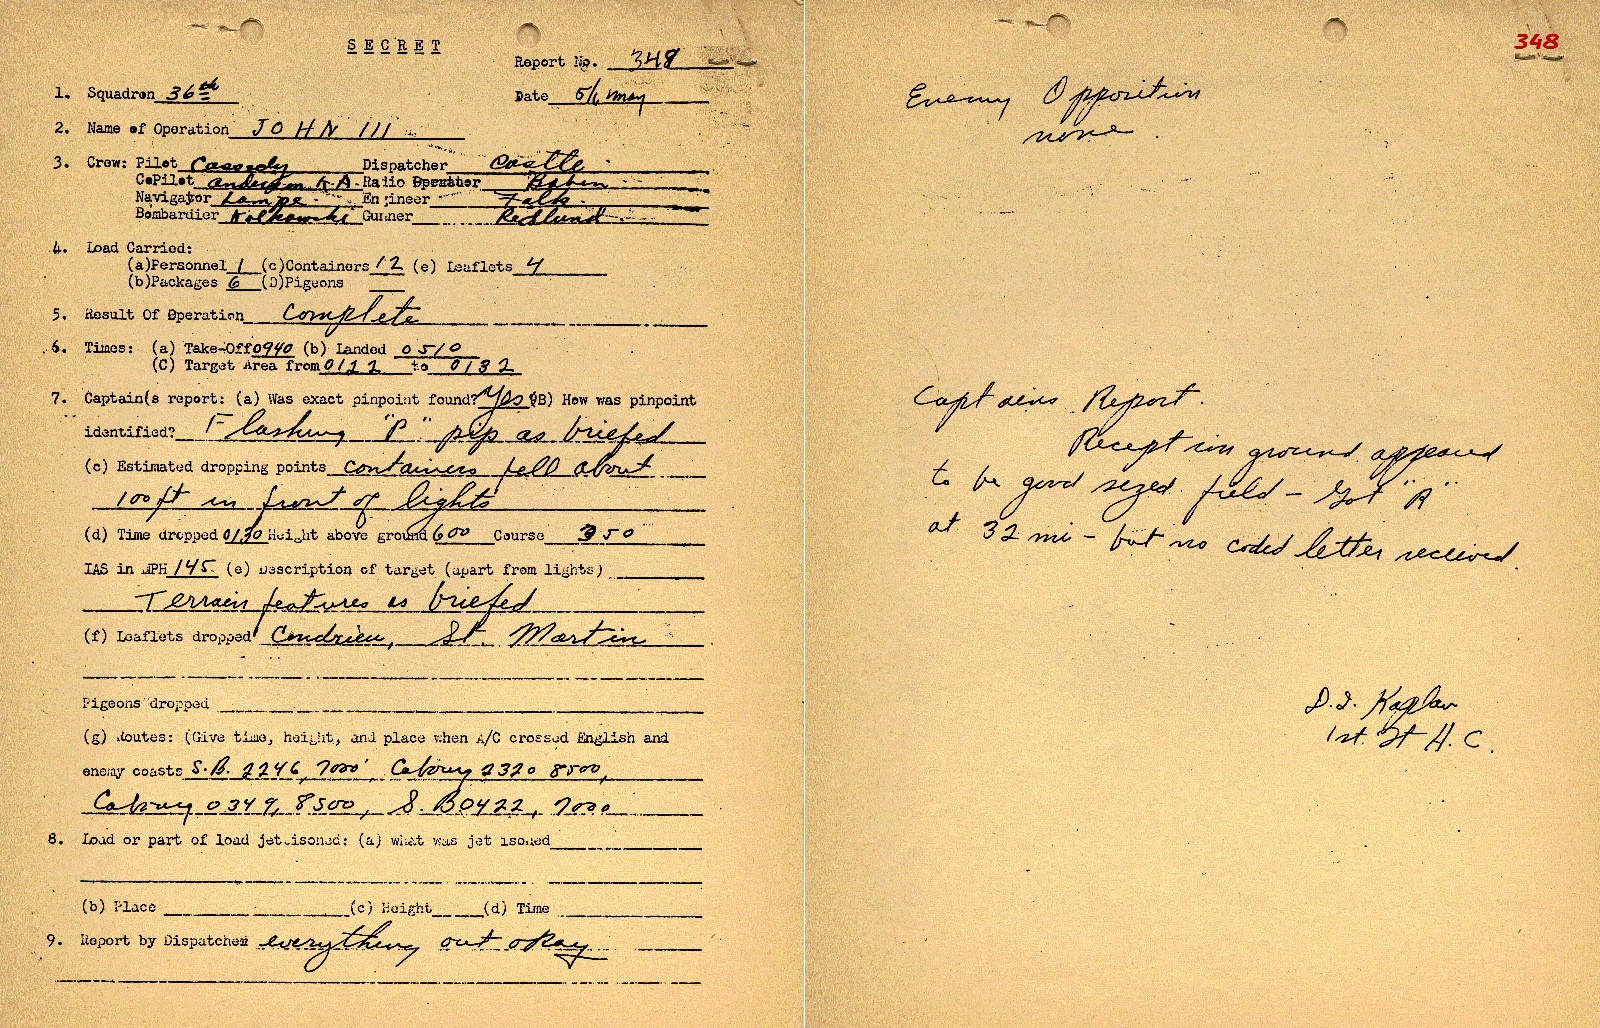 SECRET
Report No. 348
1. Squadron 36th
Date 5/6 May
2. Name of Operation JOHN III
3. Crew: Pilot Cassedy Dispatcher Castle
CoPilot Anderson K.A. Radio Operator
Navigator Lampe Engineer Falk
Bombardier Kolkowski Gunner Redlund
4. Load Carried:
(a)Personnel 1 (c)Containers 12 (e) Leaflets 4
(b)Packages 6 (D)Pigeons
5. Result Of Operation Complete
6. Times: (a) Take-Off 0940 (b) Landed 0510
(C) Target Area from 0122 to 0132
7. Captain(s report: (a) Was exact pinpoint found? Yes (B) How was pinpoint
identified? Flashing "P" pip as briefed
(c) Estimated dropping points Containers fell about
100 ft in front of lights
(d) Time dropped 0130 Height above ground 600 Course 350
IAS in MPH 145 (e) Description of target (apart from lights)
Terrain features as briefed
(f) Leaflets dropped Condrieu, St. Martin
Pigeons dropped
(g) Routes: (Give time, height, and place when A/C crossed English and
enemy coasts S.B. 2246, 7000' Cabourg 2320 8500,
Cabourg 0349, 8500, S.B 0422, 7000
8. Load or part of load jettisoned: (a) what was jettisoned
(b) Place (c) Height (d) Time
9. Report by Dispatcher everything out okay
348
Enemy Opposition
none.
Captains Report.
Reception ground appeared
to be good sized field - Got "R"
at 32 mi - but no coded letter received.
D.I. Kaplan
1st Lt A.C.